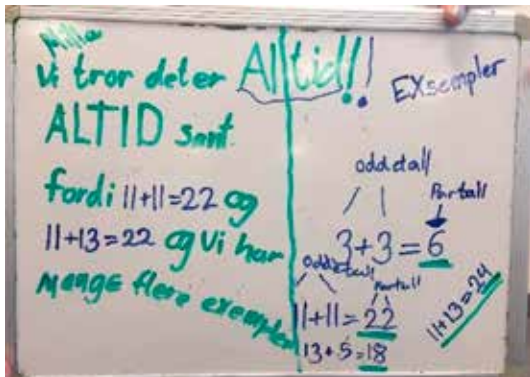 Milla
Vi tror deter Alltid!!
ALTID sant
fordi 11+11=22 og
11+13=22 og vi har
mange flere exempler
EXsempler
oddetall
Partall
3+3=6
oddetall
Partall
11+11=22
13+5=18
11+13=24